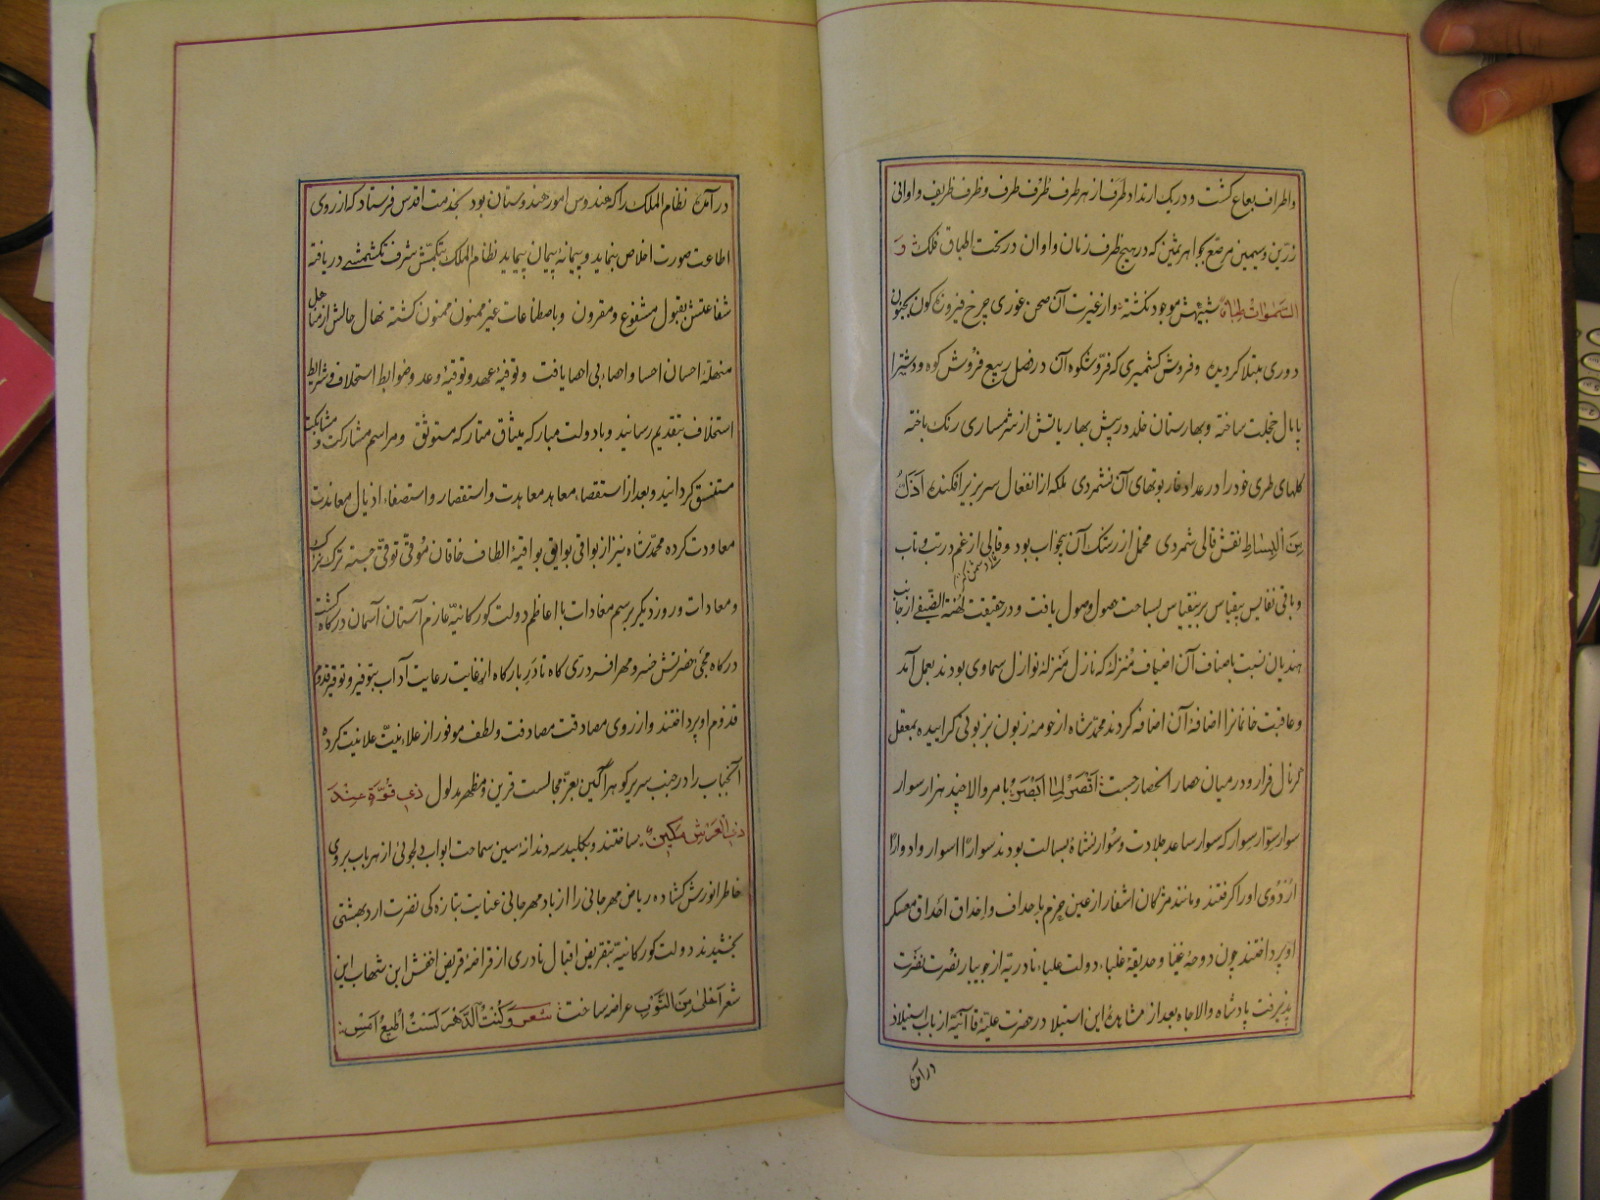 واطراف بقاع کشت و در یک ارتداد طرف از هر طرف ظرف طرف و ظرف ظریف و اوانی
زرین و سیمین مرصع بجواهر ثمین که در هیچ ظرف زمان و اوان در تحت اطباق فلک و
السموات طباقا شبیهش موجود نکشته و از غیرت آن صحن غوری چرخ فیروزه کون بجنون
دوری مبتلا کردیده و فروش کشمیری که فرش شکوه آن در فصل ربیع فروش کوه و دشت را
پامال خجلت ساخته و بهارستان خلد در پیش بهاریاتش از شرمساری رنک باخته
کلهای طری خود را در عداد خار بوتهای آن نشمردی بلکه از انفعال سر بزیر افکنده اذل
من البساط نقش قالی شمردی مخمل از رشک آن بیخواب بود و قالی از غم در تب و تاب
و باقی نفایس بیقیاس بساحت حصول وصول یافت و در حقیقت لهنة الضیف از جانب
هندیان نسبت باصناف آن اضیاف منزله که نازل منزلهٔ نوازل سماوی بودند بعمل آمد
و عاقبت خانمانرا اضافهٔ آن اضافه کردند محمد شاه از حومهٔ زبون بزبونی کراییده بمعقل
کرنال فرار و در میان حصار انحصار جست اقصر لما ابصر بامر والا چند هزار سوار
سوار سوار سوار که سوار ساعد جلادت و سوار نشاة بسالت بودند سوارا اسوار و ادوارا
اردوی او را کرفتند و مانند مژکان اشفار از عین حزم باحداف و احداق احداق معسکر
او پرداختند چون دوحهٔ غنا و حدیقهٔ غلباء دولت علیاء نادریه از جویبار نصرت نضرت
پذیرفت پادشاه والاجاه بعد از مشاهدهٔ این استیلا در حضرت علیهٔ قاآنیه از باب استیلاذ
در آمده
در آمده نظام الملک را که مهندوس امور هندوستان بود بخدمت اقدس فرستاد که از روی
اطاعت صورت اخلاص بنماید و پیمانهٔ پیمان پیماید نظام الملک بتکمش شرف تکشمشی دریافته
شفاعتش بقبول مشفوع و مقرون و باصطناعات غیر ممنون ممنون کشته نهال حالش از مناهل
منهلهٔ احسان احسا و احصاء بی احصا یافت و توفیهٔ عهد و توقیهٔ وعد و ضوابط استحلاف و شرایط
استخلاف بتقدیم رسانید و با دولت مبارکه میثاق متارکه مستوثق و مراسم مشارکت و مشابکت
متسق کردانید و بعد از استقصاء معاهد معاهدت و استقصار و استصفاء اذیال معاندت
معاودت کرده محمد شاه نیز از بوائق بوایق بواقیهٔ الطاف خاقان موقی توقی جسته ترک
و معادات و روز دیکر برسم مغادات با اعاظم دولت کورکانیه عازم آستان آسمان درکاه کشت
درکاه مجئ حضرتش خسرو مهر افسر دری کاه نادر بارکاه از غایت رعایت آداب بتوفیر و توقیر قدوم
قدوم او پرداختند و از روی مصادقت مصادفت و لطف موفور از علاء نیت علانیت کرده
آنجناب را در جنب سریر کوهر آکین بعز مجالست قرین و مظهر مدلول ذی قوة عند
ذی العرش مکین ساختند و بکلید سه دندانهٔ سین سماحت ابواب دلجوئی از هر باب بر وی
خاطر انورش کشاده ریاض مهرجانی را از باد مهرجانی عنایت بتازه کی نضرت اردیبهشتی
بخشیدند دولت کورکانیه بتقریض اقبال نادری از قراضهٔ قریض اخفش ابن شهاب این
شعر احلی من التوب عراضه ساخت شعر و کنت الدهر لست اطیع امس